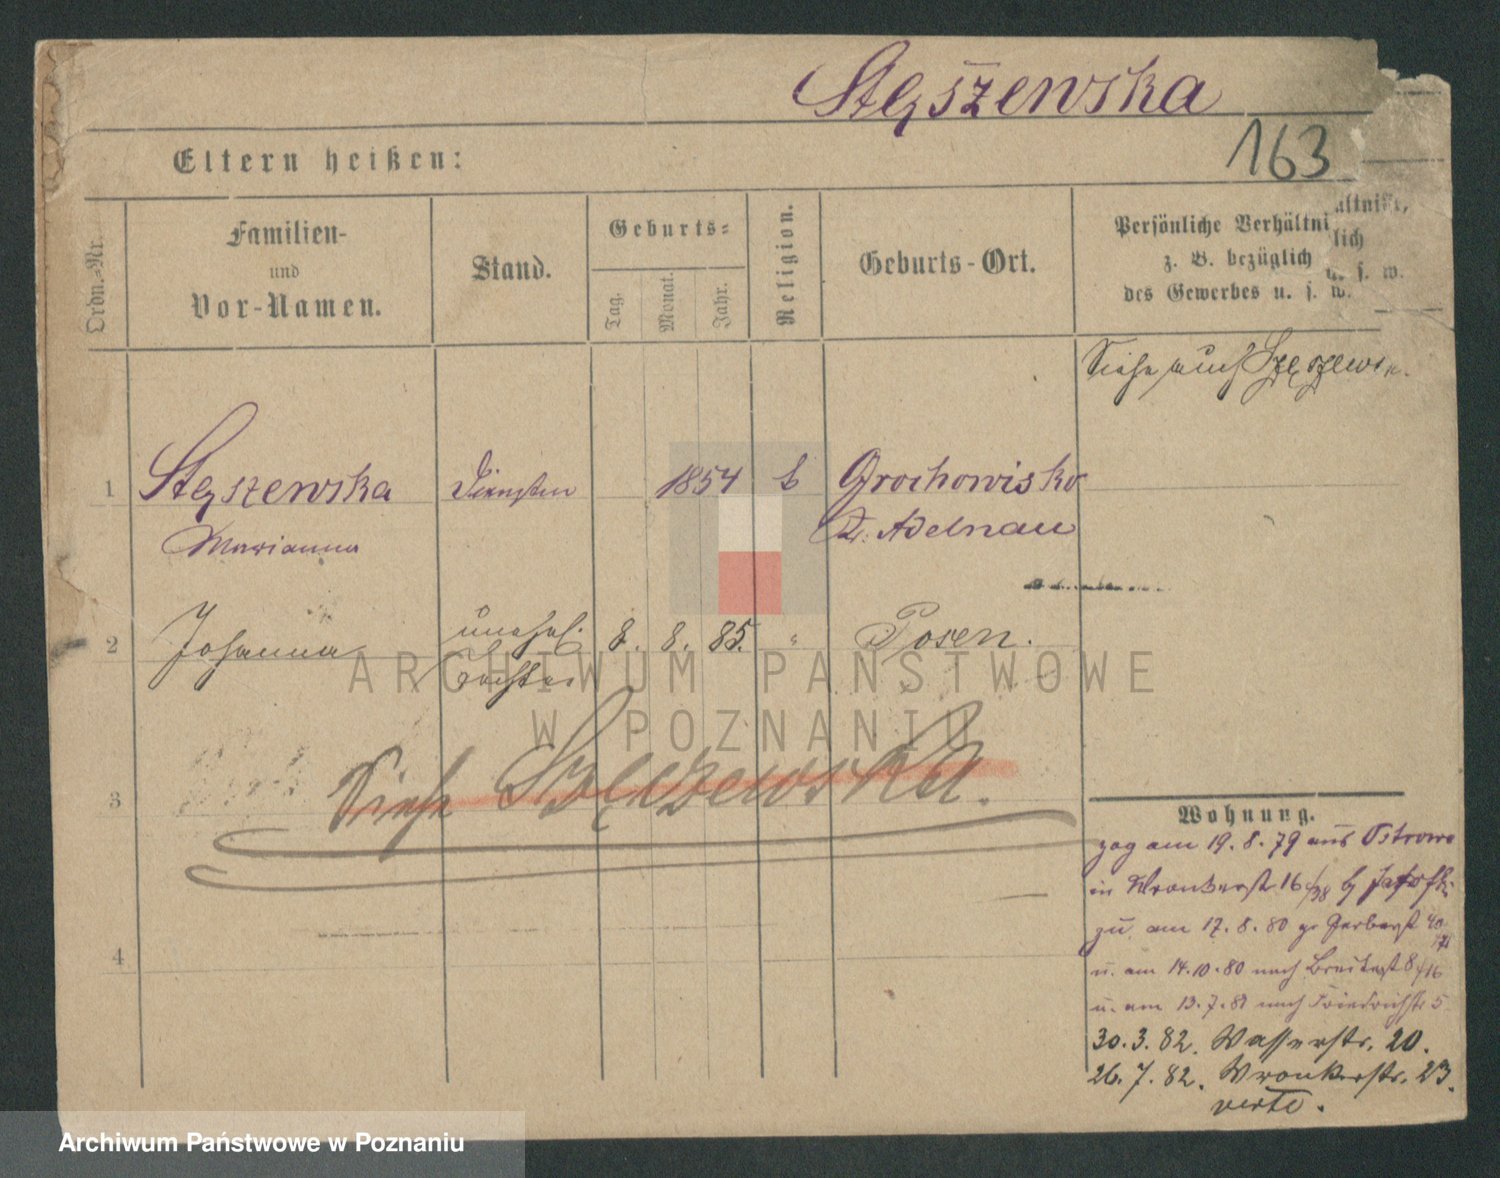 Stęszewska
163
Eltern heißen:
Ordn.-Nr.
Familien-
und
Vor-Namen.
Stand.
Geburts-
Tag.
Monat.
Jahr.
Religion.
Geburts-Ort.
Persönliche Verhältni
z. B. bezüglich
des Gewerbes u. s. w.
ältnisse,
lich
u. s. w.
Siehe auch
1
Stęszewska
Marianna
1854
Grochowisko
Kr. Adelnau
2
Johanna
unehel.
Tochter
8.
8.
85.
"
Posen.
ARCHIWUM PAŃSTWOWE
W POZNANIU
Siehe Szczeszewska.
3
4
Wohnung.
zog am 19. 8. 79 aus Ostrowo
in Wronkerstr 16/38 b
zu am 17. 8. 80 gr Gerberst 40
u. am 14.10.80 nach Breitestr 8/16
u. am 13.7.81 nach Friedrichstr 5
30. 3. 82. Wasserstr. 20.
26. 7. 82. Wronkerstr. 23.
verte.
Archiwum Państwowe w Poznaniu